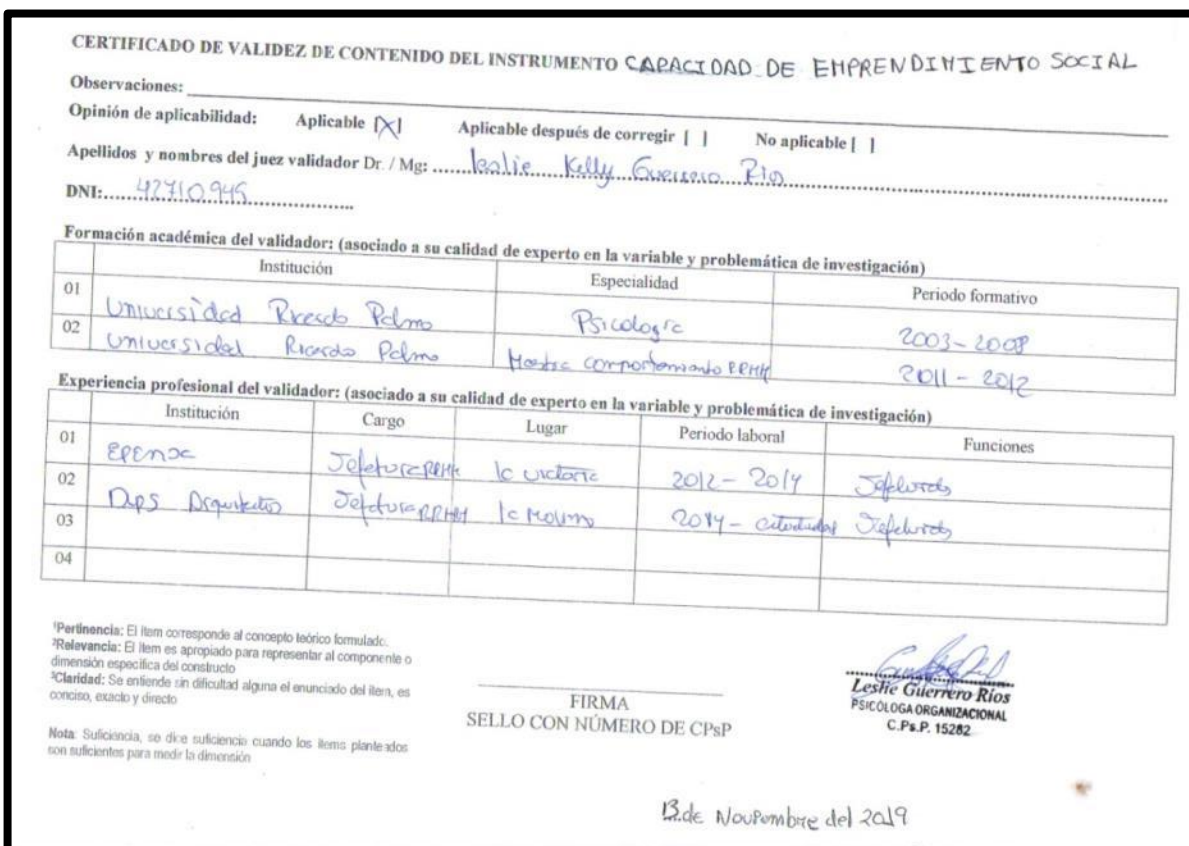 CERTIFICADO DE VALIDEZ DE CONTENIDO DEL INSTRUMENTO CAPACIDAD DE EMPRENDIMIENTO SOCIAL
Observaciones:
Opinión de aplicabilidad: Aplicable [X] Aplicable después de corregir [ ] No aplicable [ ]
Apellidos y nombres del juez validador Dr. / Mg: Leslie Kelly Guerrero Rios
DNI: 42710945
Formación académica del validador: (asociado a su calidad de experto en la variable y problemática de investigación)
Institución Especialidad Periodo formativo
01 Universidad Ricardo Palma Psicología 2003-2008
02 Universidad Ricardo Palma comportamiento RRHH 2011 - 2012
Experiencia profesional del validador: (asociado a su calidad de experto en la variable y problemática de investigación)
Institución Cargo Lugar Periodo laboral Funciones
01 Jefatura RRHH la victoria 2012 - 2014
02 Jefatura RRHH la Molina 2014 -
03
04
¹Pertinencia: El ítem corresponde al concepto teórico formulado.
²Relevancia: El ítem es apropiado para representar al componente o
dimensión específica del constructo
³Claridad: Se entiende sin dificultad alguna el enunciado del ítem, es
conciso, exacto y directo
Nota: Suficiencia, se dice suficiencia cuando los ítems planteados
son suficientes para medir la dimensión
FIRMA
SELLO CON NÚMERO DE CPsP
Leslie Guerrero Ríos
PSICÓLOGA ORGANIZACIONAL
C.Ps.P. 15282
13 de Noviembre del 2019